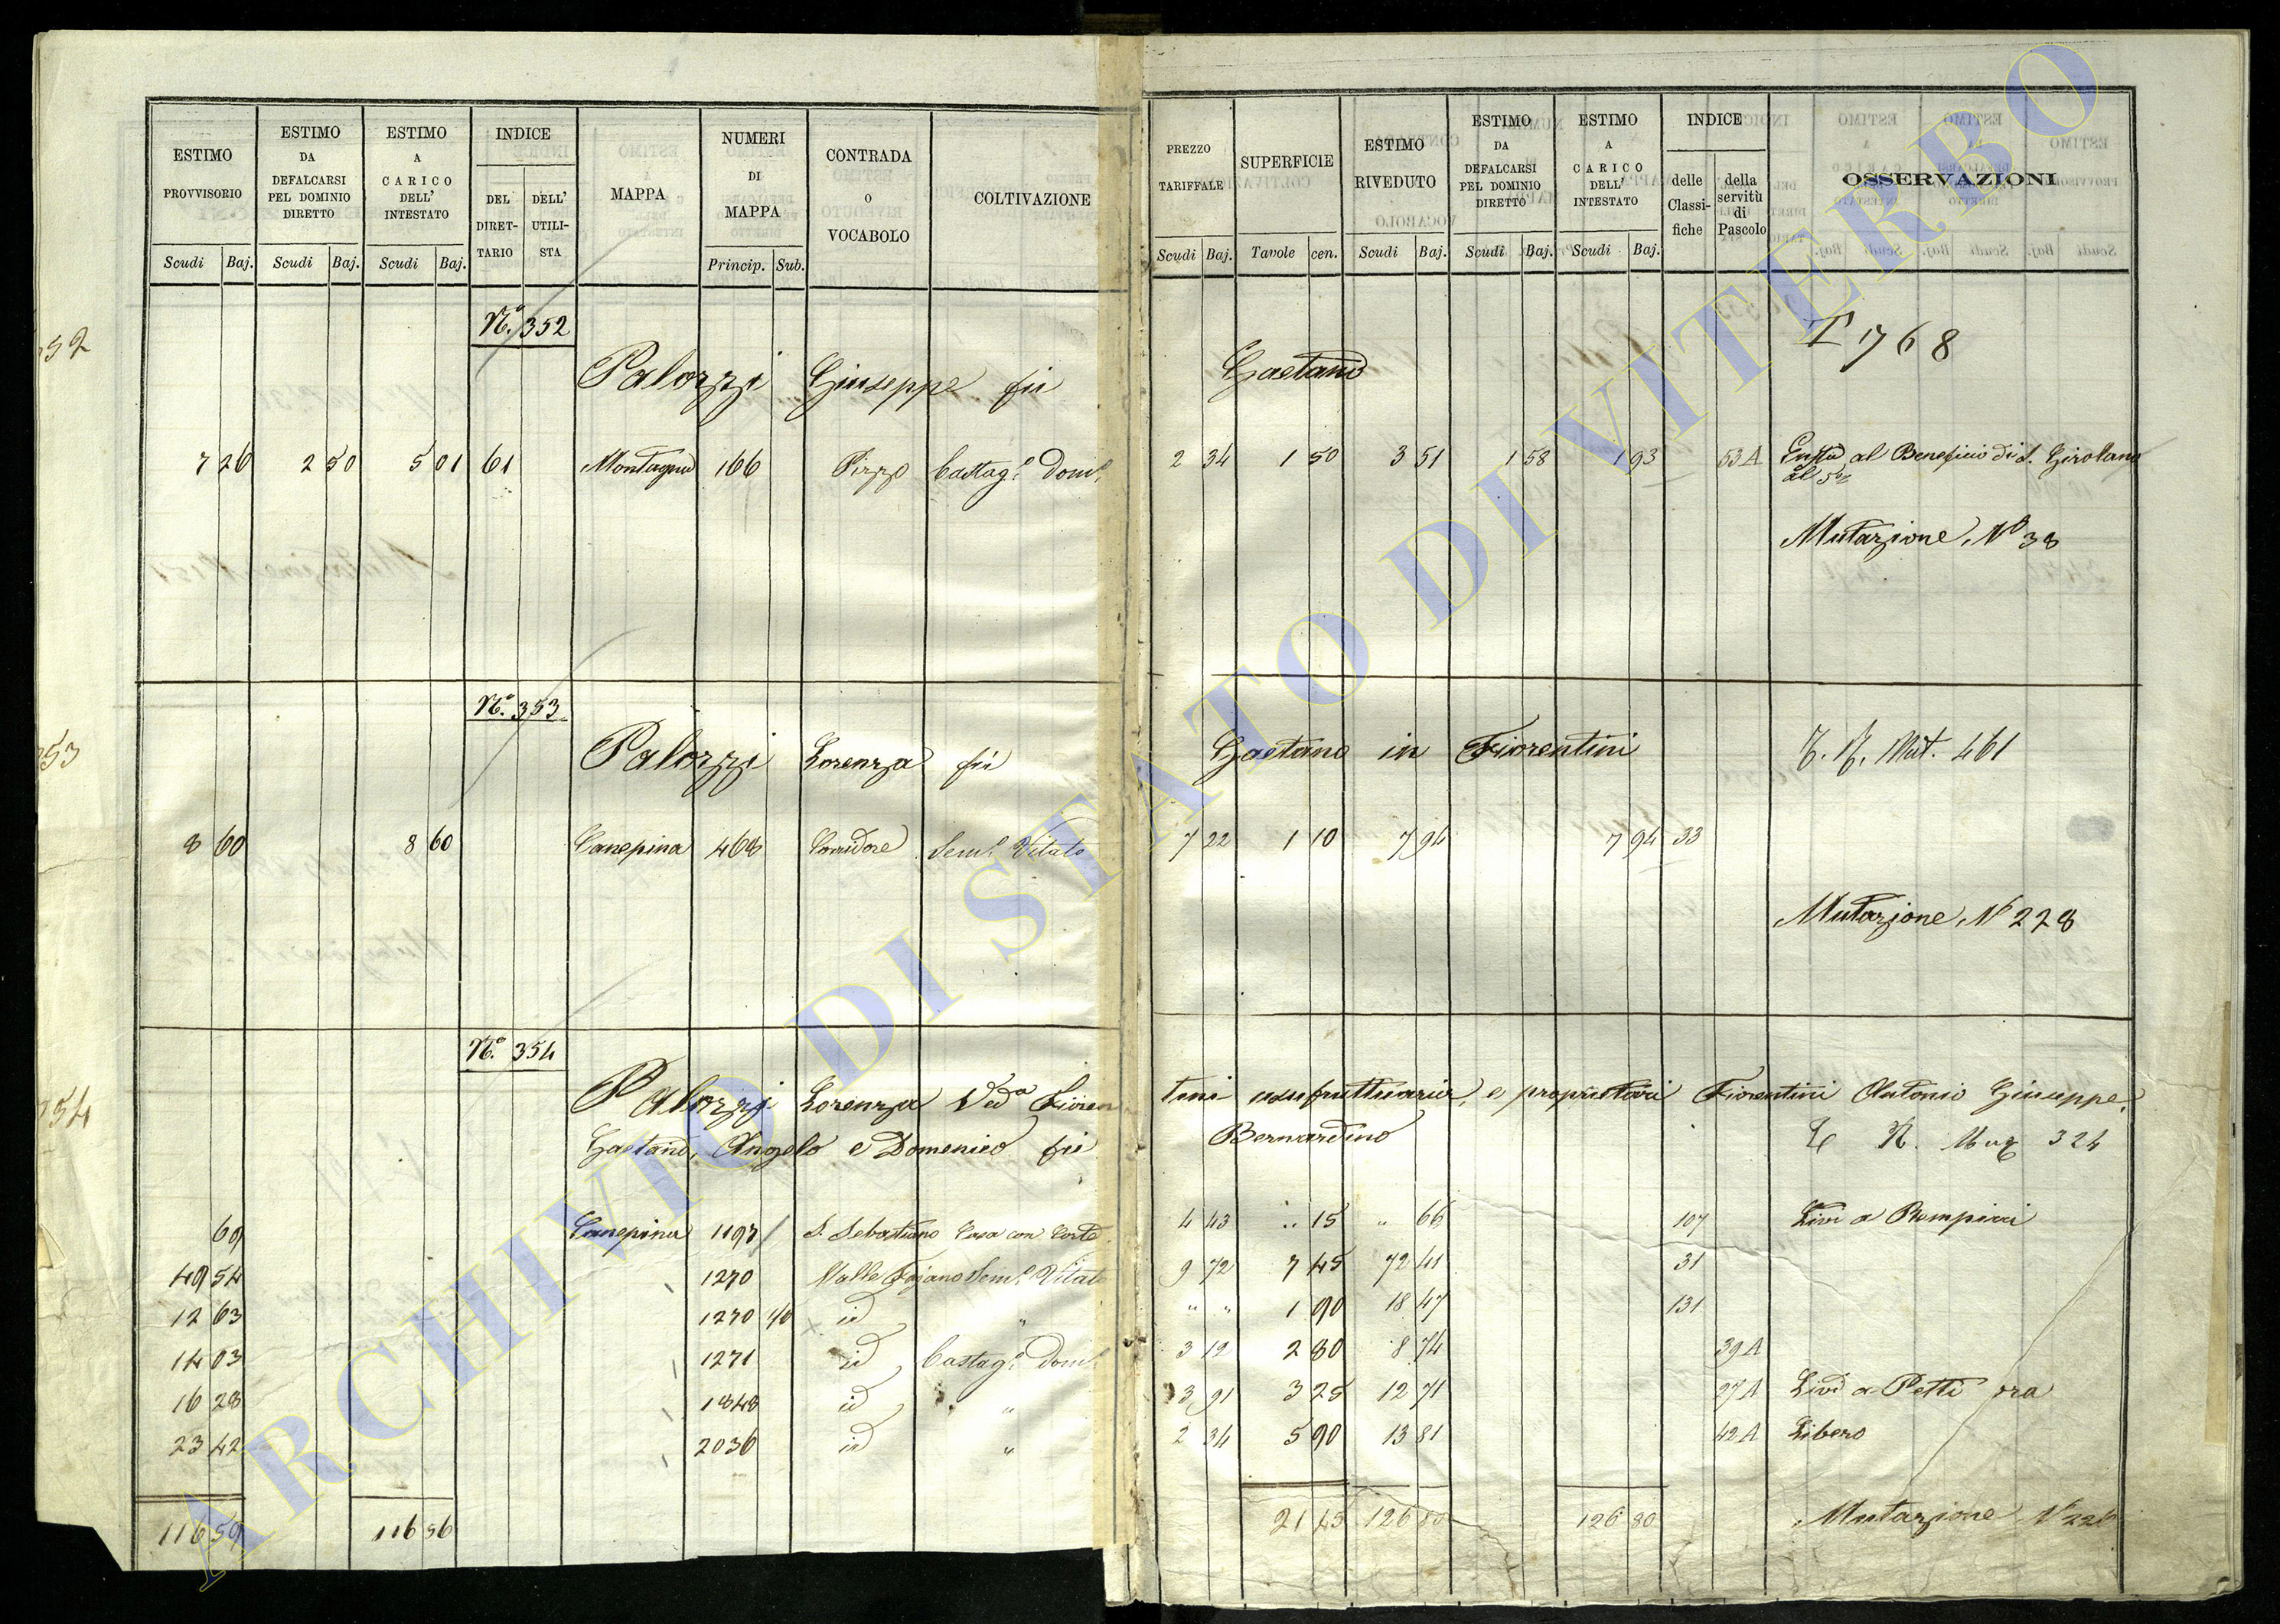 ESTIMO PROVVISORIO Scudi Baj.
ESTIMO DA DEFALCARSI PEL DOMINIO DIRETTO Scudi Baj.
ESTIMO A CARICO DELL' INTESTATO Scudi Baj.
INDICE DEL DIRET- TARIO DELL' UTILI- STA
MAPPA
NUMERI DI MAPPA Princip. Sub.
CONTRADA O VOCABOLO
COLTIVAZIONE
PREZZO TARIFFALE Scudi Baj.
SUPERFICIE Tavole cen.
ESTIMO RIVEDUTO Scudi Baj.
ESTIMO DA DEFALCARSI PEL DOMINIO DIRETTO Scudi Baj.
ESTIMO A CARICO DELL' INTESTATO Scudi Baj.
INDICE delle Classi- fiche della servitù di Pascolo
OSSERVAZIONI
N.º 352
T 768
Palozzi Giuseppe fu Gaetano
7 26 2 50 5 01 61 Montagna 166 Pizzo Castag.º dom.º 2 34 1 50 3 51 1 58 1 93 53 A al Beneficio di S. Girolamo
al
Mutazione Nº 38
N.º 353
353
Palozzi Lorenza fu Gaetano in Fiorentini Mut. 461
8 60 8 60 Canepina 468 Corridore Sem.º Vitato 7 22 1 10 7 94 7 94 33
Mutazione Nº 228
N.º 354
354
Palozzi Lorenza Ved.a Fioren tini usufruttuaria, e proprietari Fiorentini Antonio Giuseppe,
Gaetano, Angelo e Domenico fu Bernardino 324
69 Canepina 1197 / S. Sebastiano Casa con Corte 4 43 .. 15 " 66 107 Livi a Rempicci
49 54 1270 Valle Fajano Sem.º Vitato 9 72 7 45 72 41 31
12 63 1270 1/0 id " " " 1 90 18 47 131
14 03 1271 id Castag.º dom.º 3 12 2 80 8 74 39 A
16 28 1848 id " 3 91 3 25 12 71 37 A Livi a Petti ora
23 42 2036 id " 2 34 5 90 13 81 42 A Libero
116 59 116 56 21 45 126 80 126 80 Mutazione Nº
ARCHIVIO DI STATO DI VITERBO